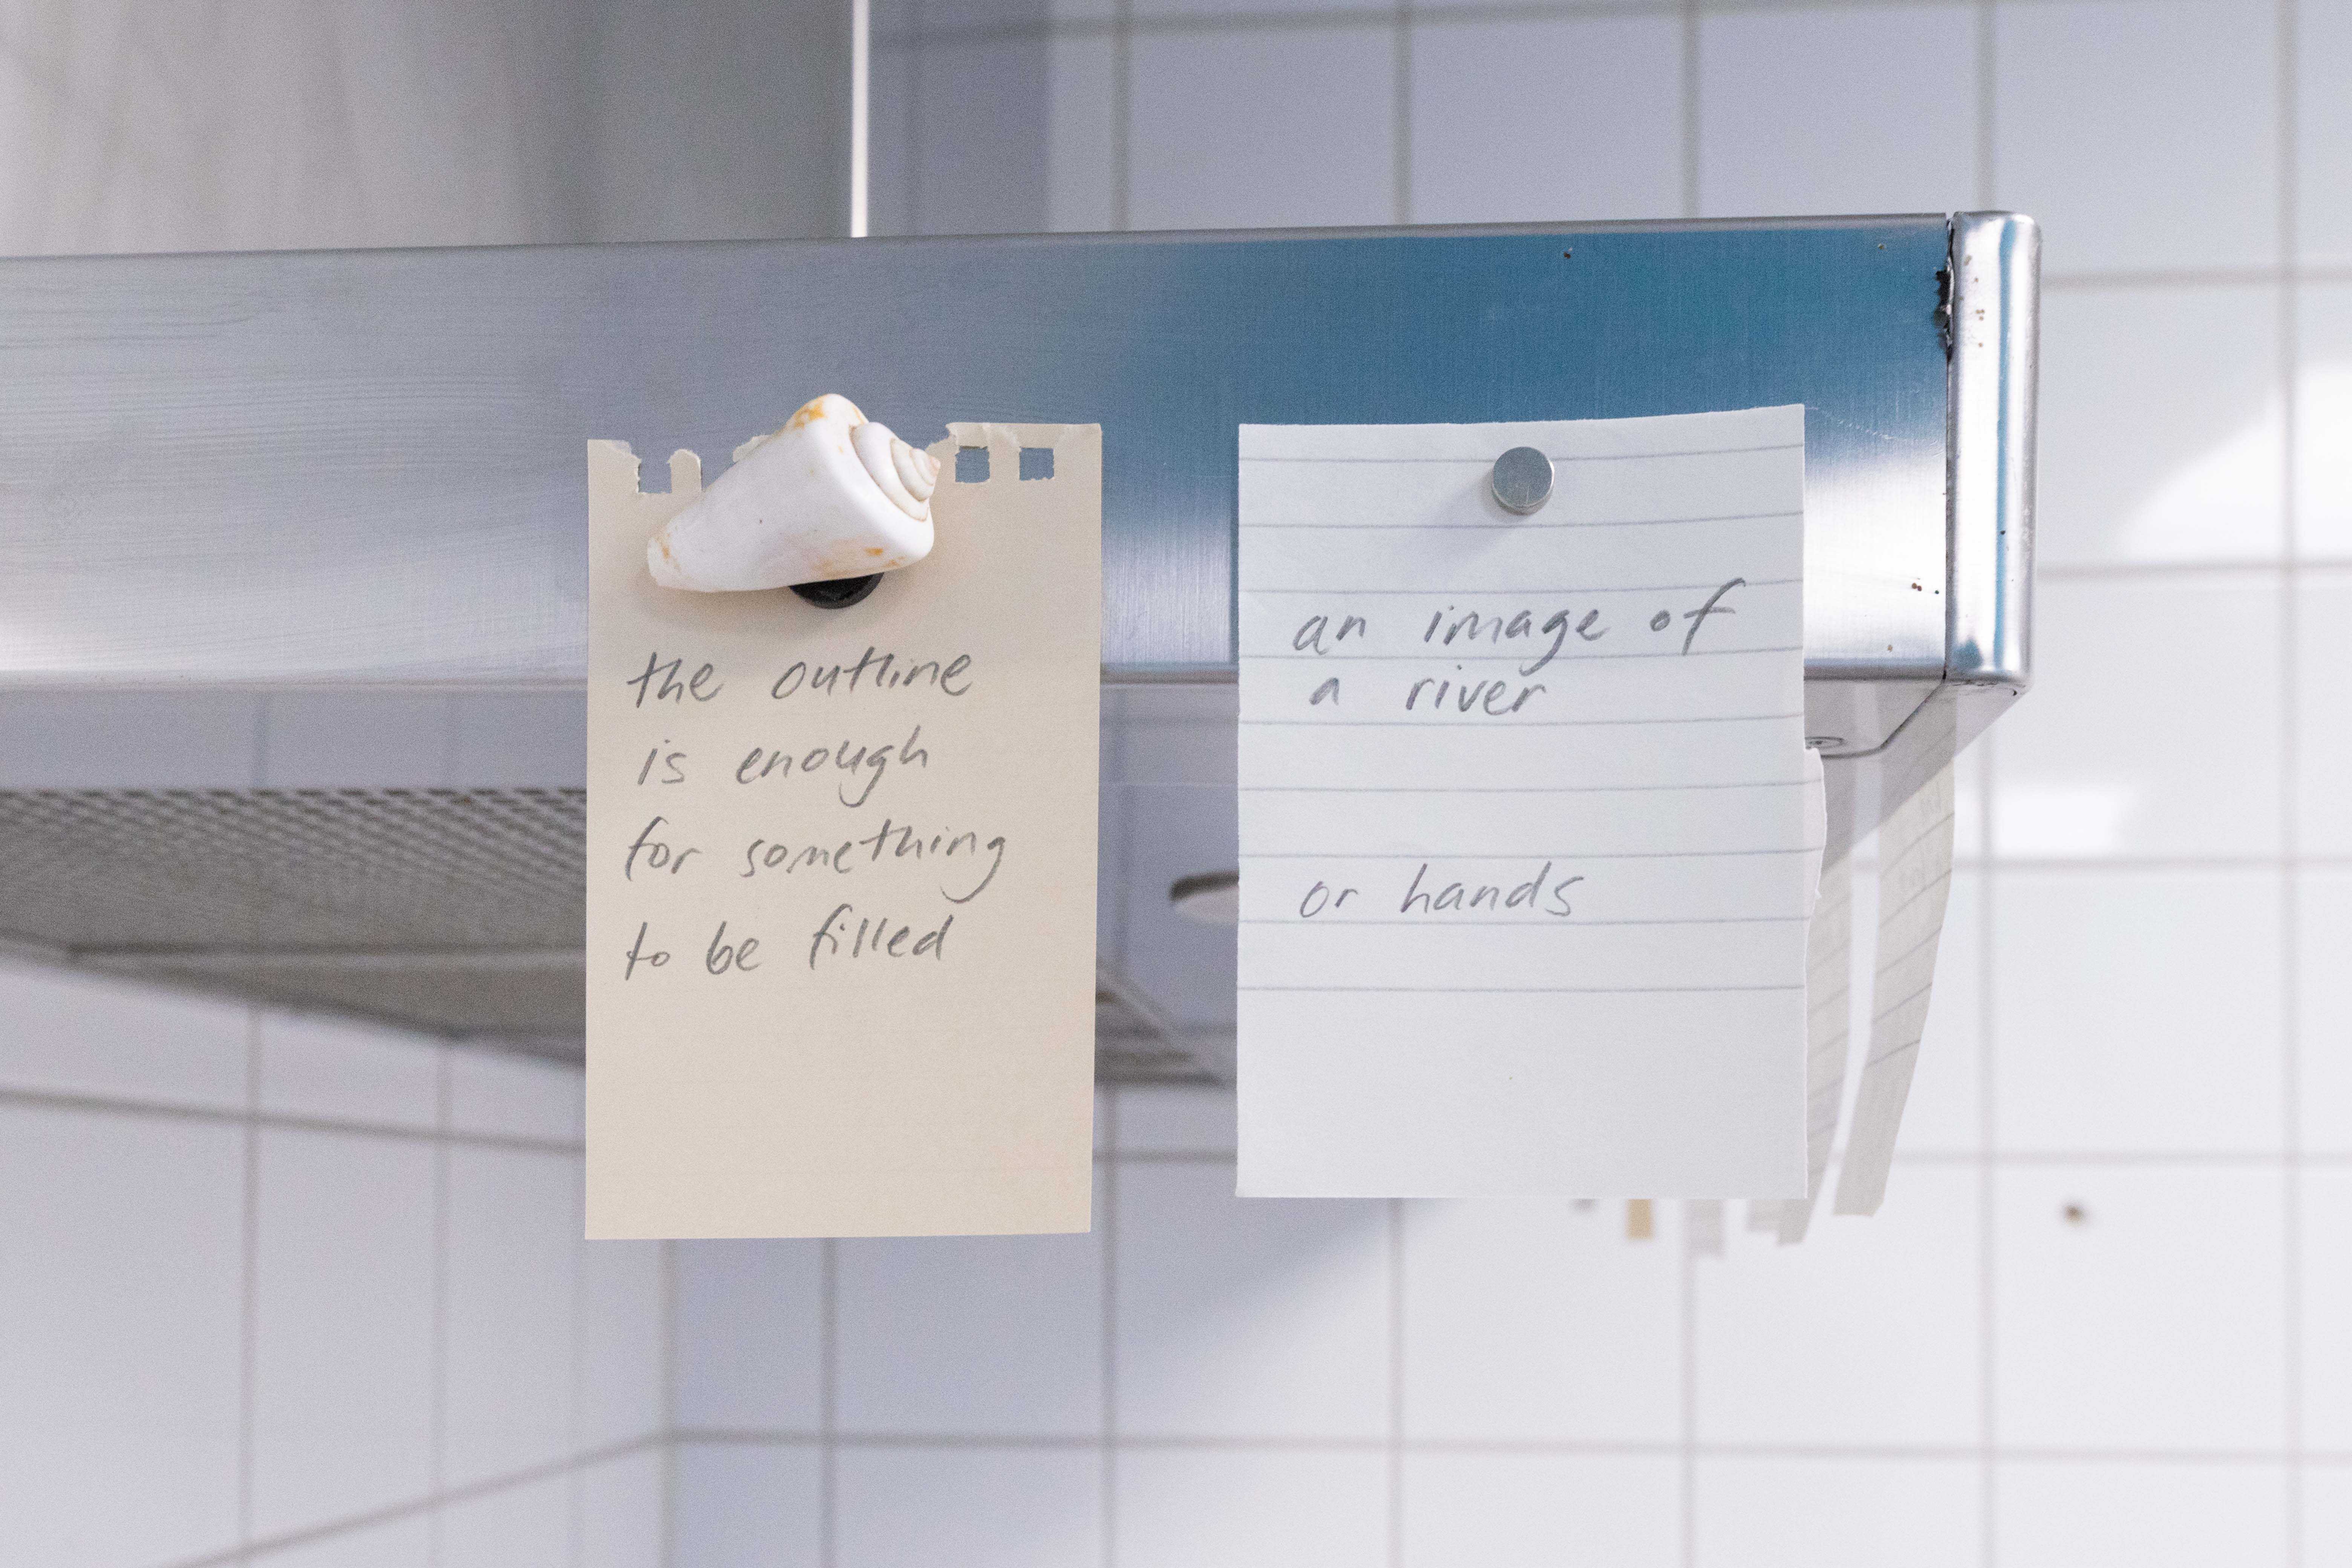 the outline
is enough
for something
to be filled
an image of
a river
or hands